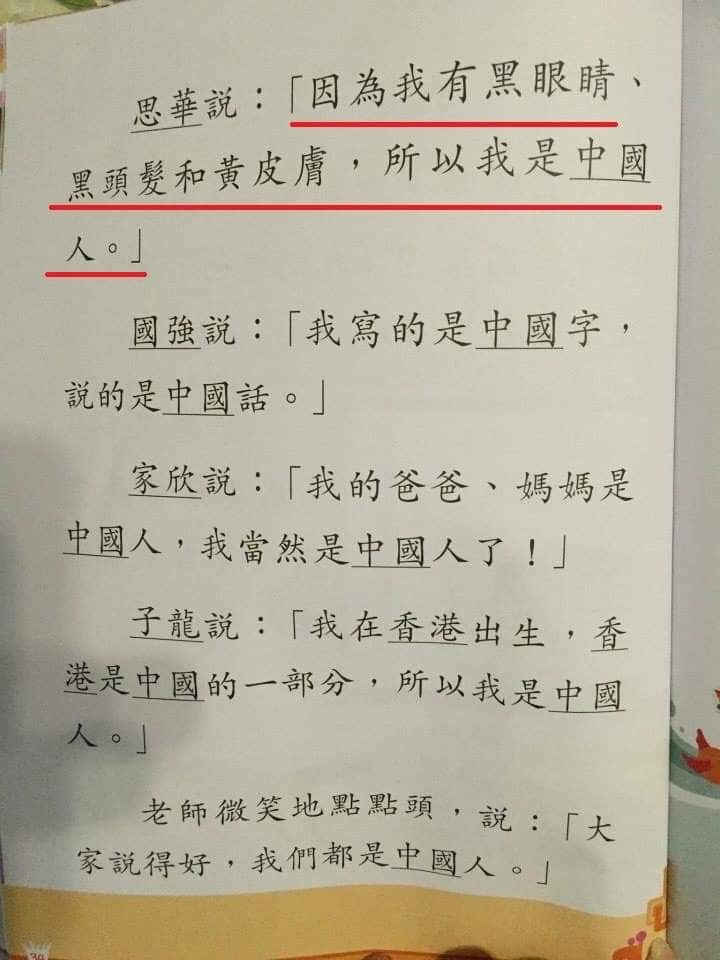 思華說：「因為我有黑眼睛、
黑頭髮和黃皮膚，所以我是中國
人。」
國強說：「我寫的是中國字，
說的是中國話。」
家欣說：「我的爸爸、媽媽是
中國人，我當然是中國人了！」
子龍說：「我在香港出生，香
港是中國的一部分，所以我是中國
人。」
老師微笑地點點頭，說：「大
家說得好，我們都是中國人。」